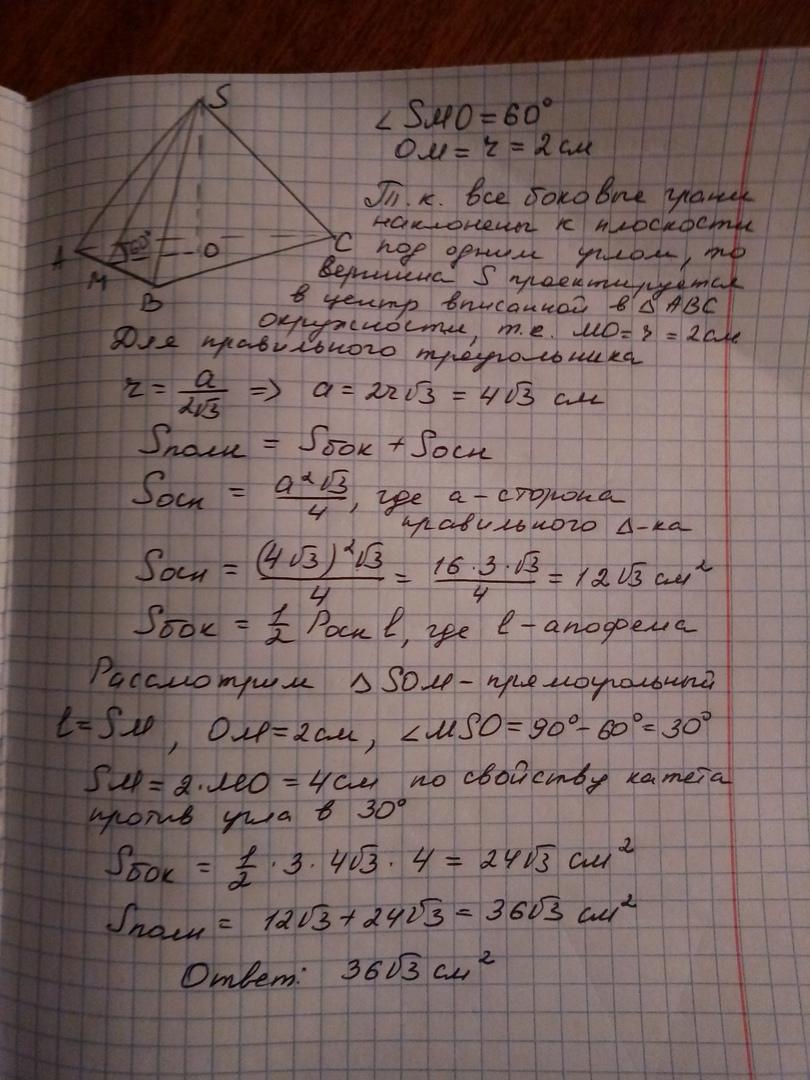 S
A
M
B
O
C
60°
∠SMO=60°
OM = r = 2 см
Т.к. все боковые грани
наклонены к плоскости
под одним углом, то
вершина S проектируется
в центр вписанной в △ABC
окружности, т.е. MO = r = 2см
Для правильного треугольника
r = a/(2√3) => a = 2r√3 = 4√3 см
Sполн = Sбок + Sосн
Sосн = a²√3/4, где a - сторона
правильного △-ка
Sосн = (4√3)²√3/4 = 16·3·√3/4 = 12√3 см²
Sбок = 1/2 Pосн l, где l - апофема
Рассмотрим △SOM - прямоугольный
l = SM, OM = 2см, ∠MSO = 90° - 60° = 30°
SM = 2·MO = 4см по свойству катета
против угла в 30°
Sбок = 1/2 · 3 · 4√3 · 4 = 24√3 см²
Sполн = 12√3 + 24√3 = 36√3 см²
Ответ: 36√3 см²